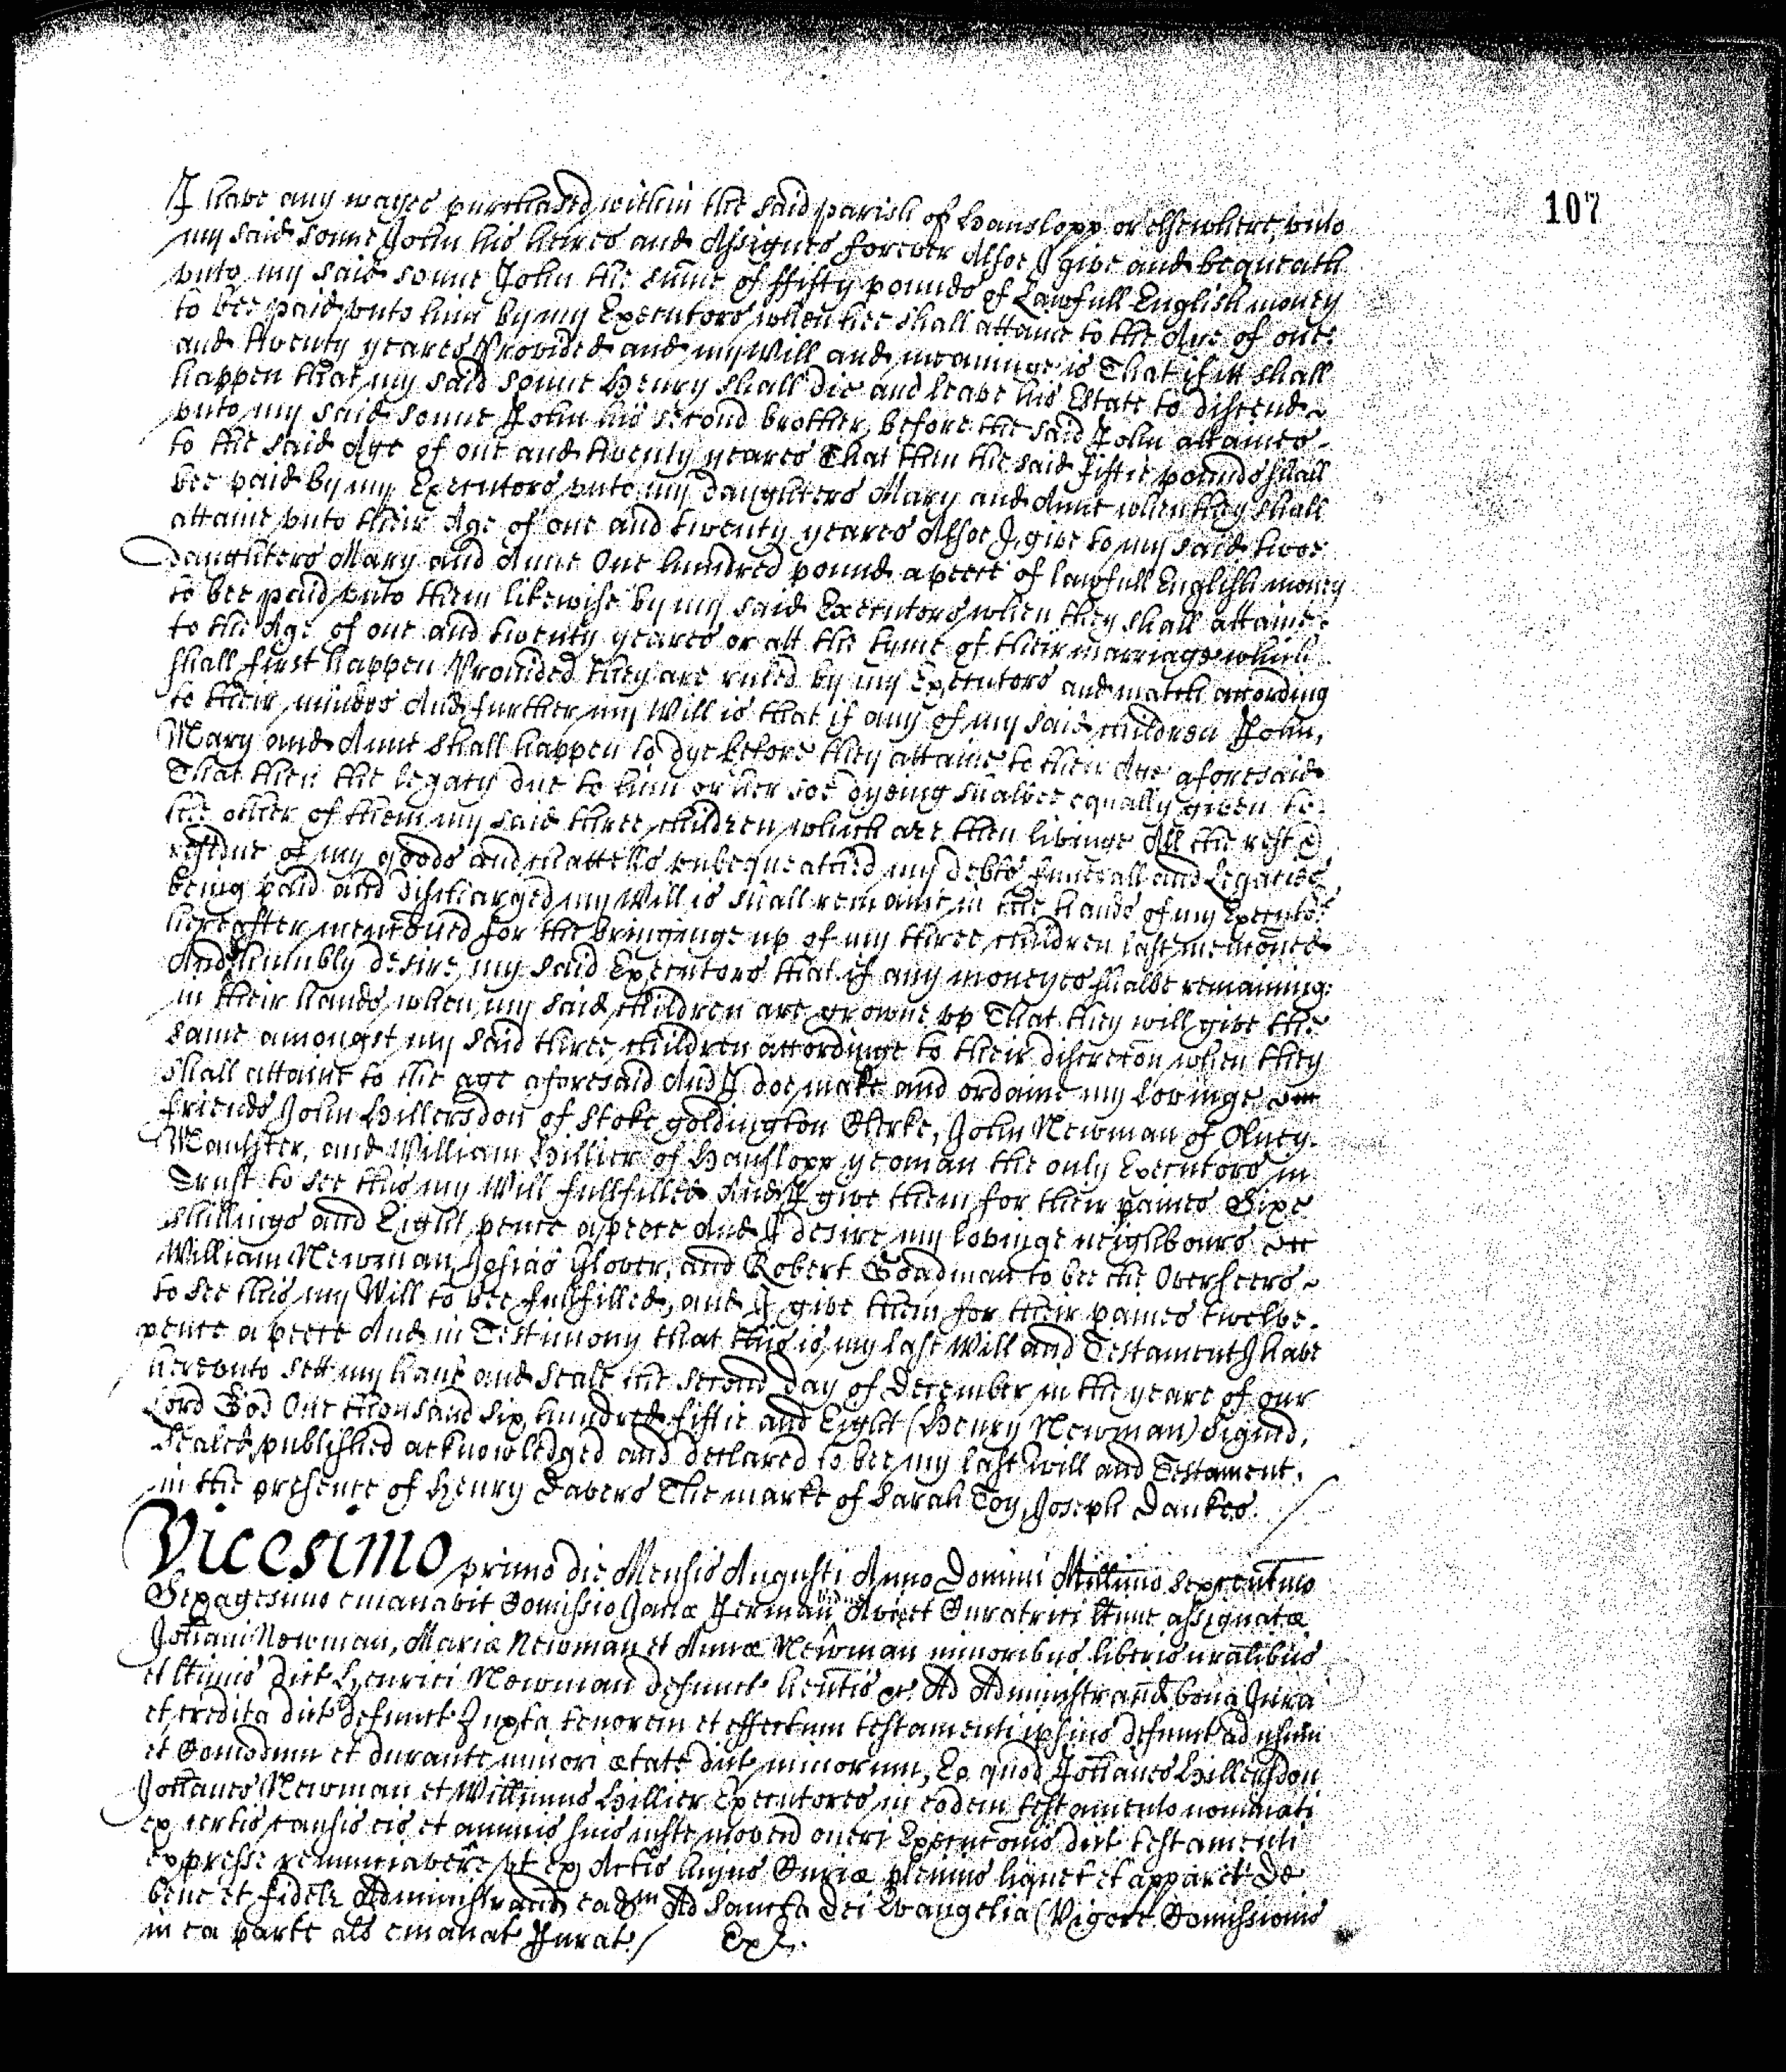 107
I have any wayes purchased within the said parish of Hanslopp or elsewhere, vnto
my said sonne John his heires and Assignes forever Alsoe I give and bequeath
vnto my said sonne John the su͞me of ffifty pounds of Lawfull English money
to bee paid vnto him by my Executors when hee shall attaine to the Age of one
and twenty yeares Provided and my Will and meaninge is That if itt shall
happen that my said sonne Henry shall die and leave his Estate to discend
vnto my said sonne John his second brother, before the said John attaines
to the said Age of one and twenty yeares That then the said fiftie pounds shall
bee paid by my Executors vnto my daughters Mary and Anne when they shall
attaine vnto their Age of one and twenty yeares Alsoe I give to my said twoe
Daughters Mary and Anne One hundred pound apeece of lawfull English money
to bee paid vnto them likewise by my said Executors when they shall attaine
to the Age of one and twenty yeares or att the tyme of their marriage which
shall first happen Provided they are ruled by my Executors and match according
to their mindes And further my Will is that if any of my said children John,
Mary and Anne shall happen to dye before they attaine to their Age aforesaid
That then the legacy due to him or her soe dyeing shalbee equally given to
the other of them my said three children which are then livinge All the rest &
residue of my goods and chattells vnbequeathed my debts funerall and Legacies
being paid and discharged my Will is shall remaine in the hands of my Executors
hereafter mentioned for the bringinge up of my three children last mentioned
And humbly desire my said Executors that if any moneyes shalbe remaining
in their hands when my said children are growne vp That they will give the
same amongst my said three children accordinge to their discretion when they
shall attaine to the age aforesaid And I doe make and ordaine my Lovinge
friends John Hillersdon of Stoke goldington Clerke, John Newman of Olney
and William Hillier of Hanslopp yeoman the only Executors in
Trust to see this my Will fullfilled And I give them for their paines Sixe
shillings and Eight pence apeece And I desire my lovinge neighbours
William Newman, Josias Glover, and Robert Goadman to bee the Overseers
to see this my Will to bee fullfilled, and I give them for their paines twelve
pence apeece And in Testimony that this is my last Will and Testament I have
herevnto sett my hand and seale the second day of December in the yeare of our
Lord God One thousand six hundred fiftie and Eight (Henry Newman) Signed,
Sealed published acknowledged and declared to bee my last Will and Testament.
in the presence of Henry Davers The marke of Sarah Toy, Joseph Dankes.
Vicesimo primo die Mensis Augusti Anno Domini Mill͞imo Sexcentmo
Sexagesimo emanavit Comissio Janæ Jerman Aviæ et Curatrici l͞time assignatæ
Joh͞ani Newman, Mariæ Newman et Annæ Newman minoribus liberis n͞ralibus
et l͞timis dict Henrici Newman defunct h͞entis &c Ad Administrand bona Jura
et credita dict defunct Juxta tenorem et effectum testamenti ipsius defunct ad vsum
et Comodum et durante minori ætate dict minorum, Eo quod Joh͞anes Hillersdon
Joh͞anes Newman et Will͞imus Hillier Executores in eodem testamento nominati
ex certis causis eis et animis suis iuste moven oneri Executionis dict testamenti
expresse renunciavere vt ex Actis huius Curiæ plenius liquet et apparet De
bene et fidelr Administrand eadm Ad Sancta Dei Evangelia (Vigore Comissionis
in ea parte als emanat Jurat / Exr.